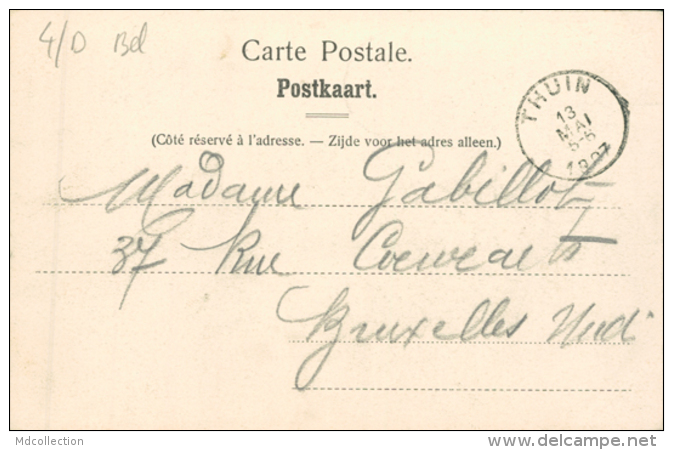 4/D Bel
Carte Postale.
Postkaart.
(Côté réservé à l'adresse. — Zijde voor het adres alleen.)
THUIN
13
MAI
5-6
1907
Madame Gabillot
37 Rue Coenraets
Bruxelles Midi
Mdcollection
www.delcampe.net